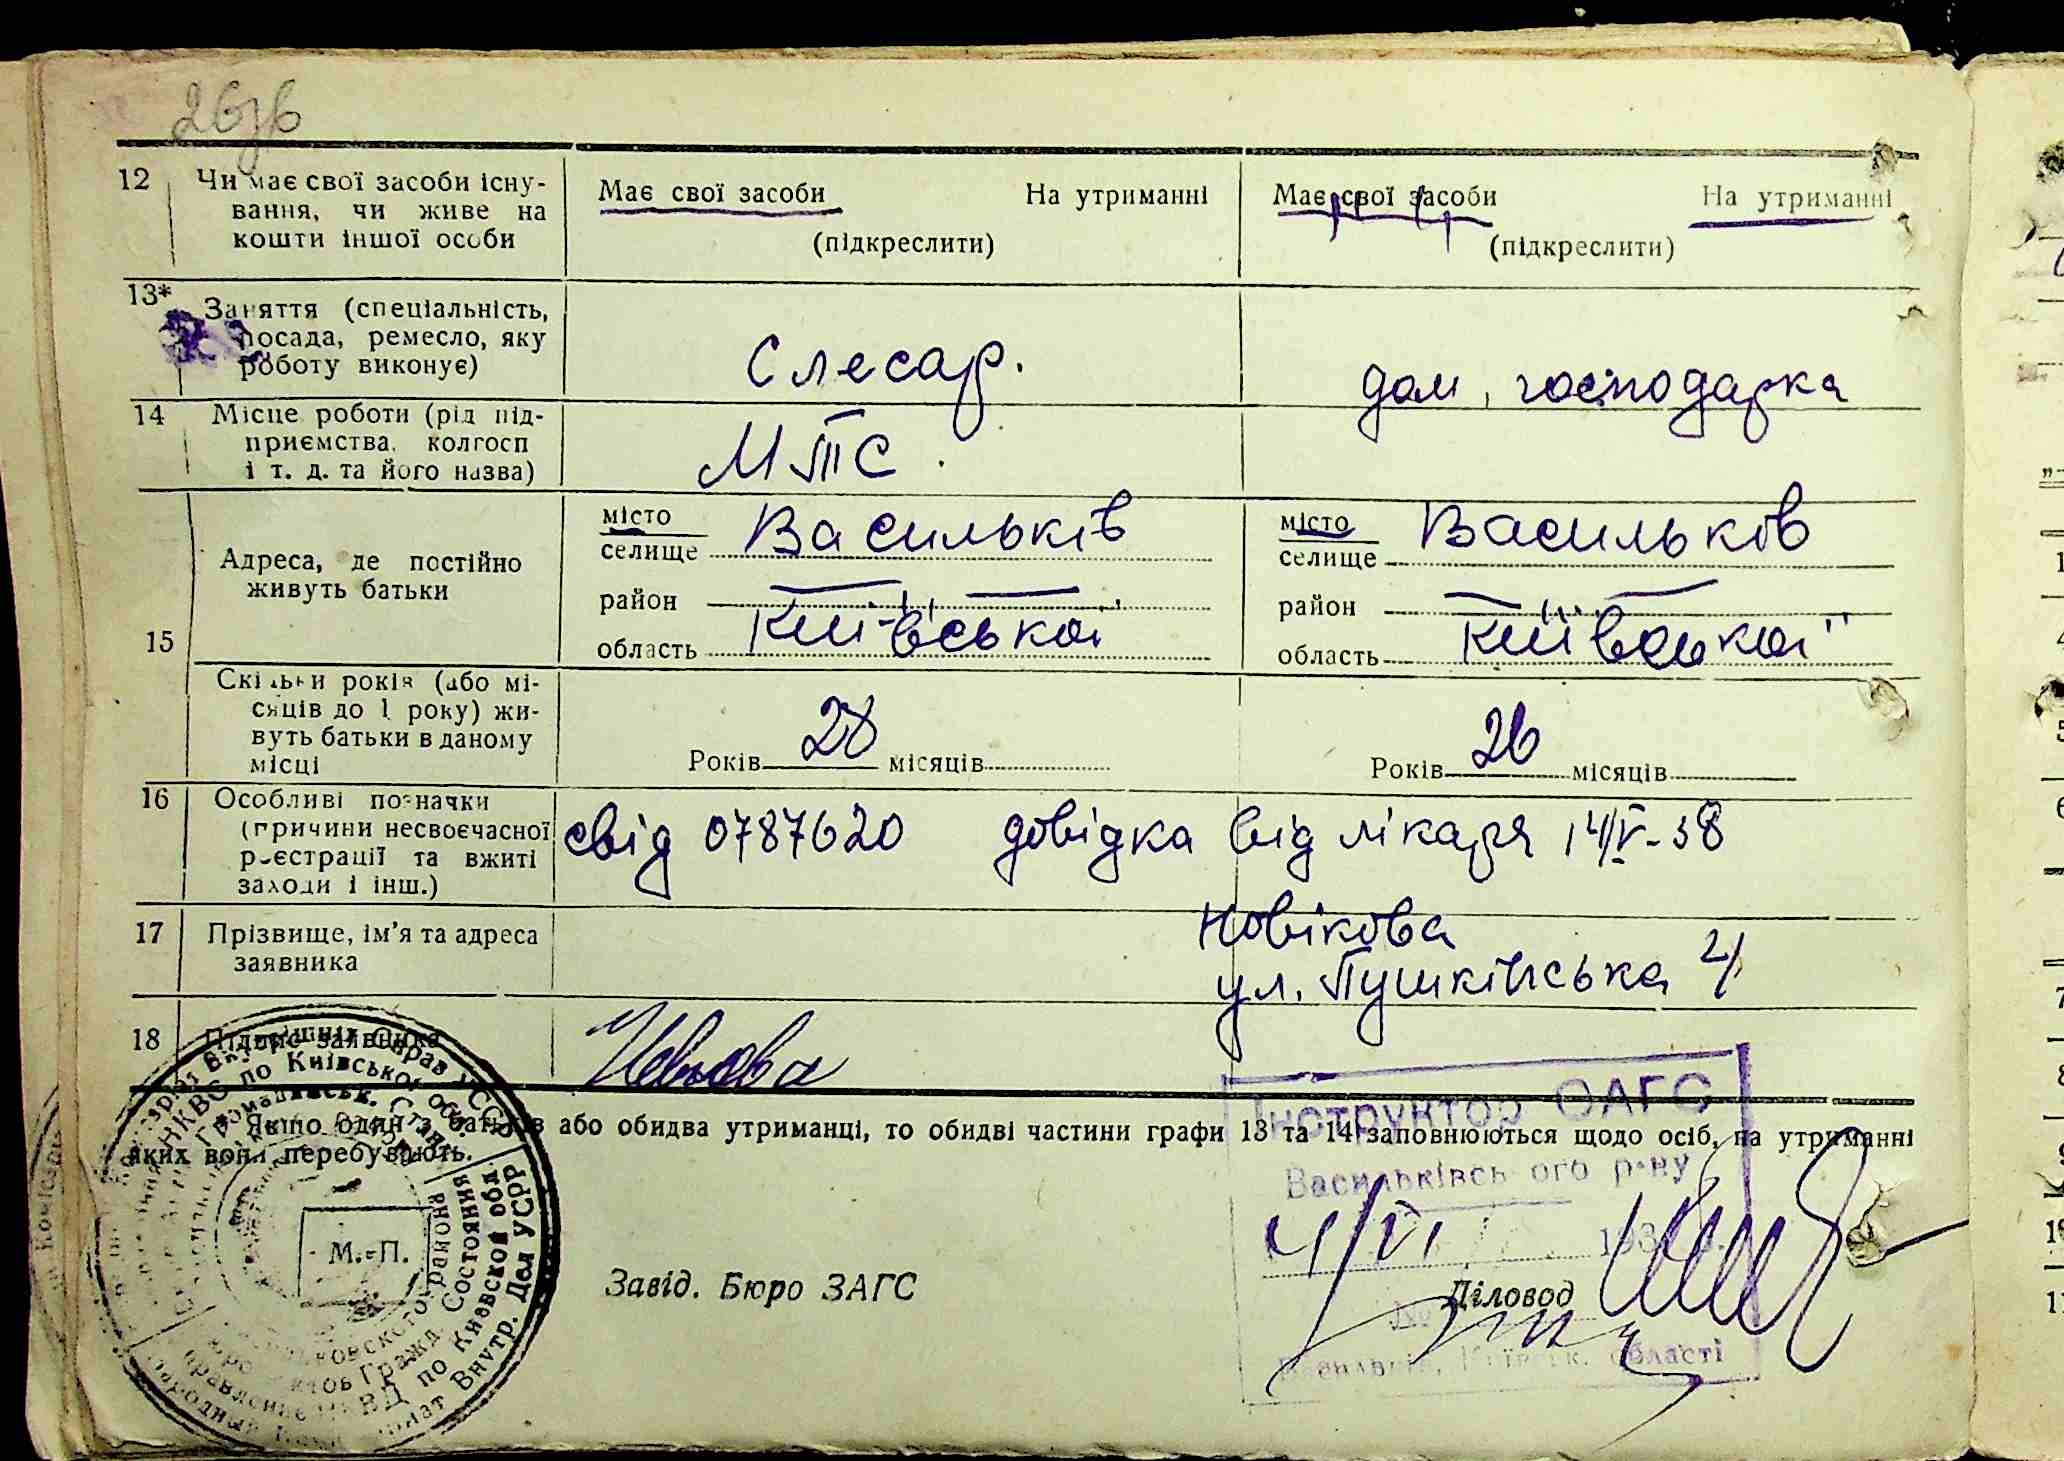 12 Чи має свої засоби існу-
вання, чи живе на
кошти іншої особи
Має свої засоби На утриманні
(підкреслити)
Має свої засоби На утриманні
(підкреслити)
13* Заняття (спеціальність,
посада, ремесло, яку
роботу виконує)
Слесар.
дом. господарка
14 Місце роботи (рід під-
приємства, колгосп
і т. д. та його назва)
МТС
15
Адреса, де постійно
живуть батьки
місто
селище Васильків
район
область Київської
місто
селище Васильків
район
область Київської
Скільки років (або мі-
сяців до 1 року) жи-
вуть батьки в даному
місці
Років 28 місяців
Років 26 місяців
16 Особливі позначки
(причини несвоєчасної
реєстрації та вжиті
заходи і інш.)
свід 0787620 довідка від лікаря 14/V-38
17 Прізвище, ім’я та адреса
заявника
Новікова
ул. Пушкінська 4
18 Підпис заявника
Якщо один з батьків або обидва утриманці, то обидві частини графи 13 та 14 заповнюються щодо осіб, на утриманні
яких вони перебувають.
Інструктор ОАГС
Васильківського р-ну
4/VI 193
М. П.
Завід. Бюро ЗАГС
Діловод
№
Васильків, Київськ. області